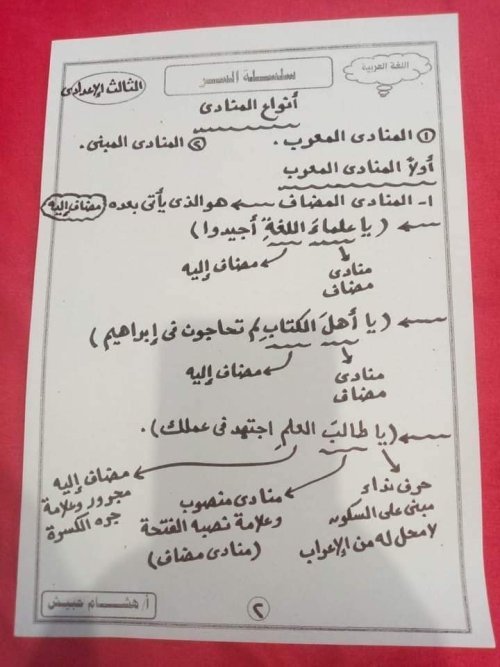 اللغة العربية
سلسلة النسر
الثالث الإعدادى
أنواع المنادى
١ المنادى المعرب . ٢ المنادى المبنى .
أولاً المنادى المعرب
١- المنادى المضاف ← هو الذى يأتى بعده مضاف إليه
← ( يا علماءَ اللغةِ أجيدوا )
منادى مضاف إليه
مضاف
← ( يا أهلَ الكتابِ لم تحاجون فى إبراهيم )
منادى مضاف إليه
مضاف
← ( يا طالبَ العلمِ اجتهد فى عملك ) .
حرف نداء منادى منصوب مضاف إليه
مبنى على السكون وعلامة نصبه الفتحة مجرور وعلامة
لا محل له من الإعراب ( منادى مضاف ) جره الكسرة
٢
أ/ هشام حبيش